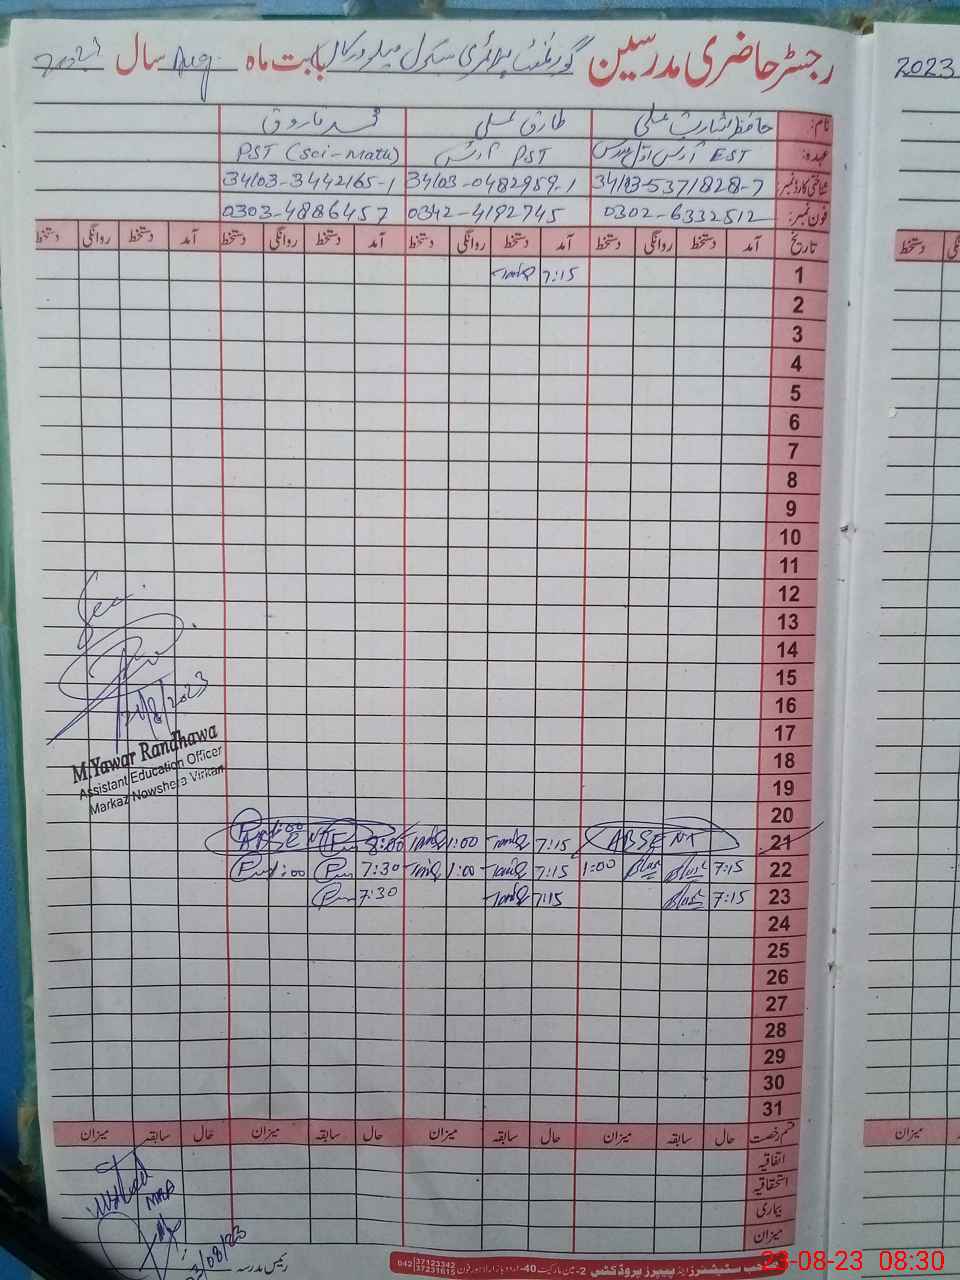 رجسٹر حاضری مدرسین گورنمنٹ پرائمری سکول بابت ماہ Aug سال 2023
2023
نام: حافظ بشارت علی طارق علی محمد فاروق
عہدہ: EST PST آرٹس PST (Sci-Math)
شناختی کارڈ نمبر: 34103-5371828-7 34103-0482959-1 34103-3442165-1
فون نمبر: 0302-6332512 0342-4192745 0303-4886457
تاریخ آمد دستخط روانگی دستخط آمد دستخط روانگی دستخط آمد دستخط روانگی دستخط آمد دستخط روانگی دستخط
1 7:15
2
3
4
5
6
7
8
9
10
11
12
13
14
15
16
17
18
19
20
21 ABSENT 7:15 1:00 8:00 ABSENT 1:00
22 7:15 1:00 7:15 1:00 7:30 1:00
23 7:15 7:15 7:30
24
25
26
27
28
29
30
31
21/8/2023
M.Yawar Randhawa
Assistant Education Officer
Markaz Nowshera Virkan
قسم رخصت حال سابقہ میزان حال سابقہ میزان حال سابقہ میزان حال سابقہ میزان
اتفاقیہ
استحقاقیہ
بیماری
میزان
MEA
23/08/23
رئیس مدرسہ
042 37123342 37231615
23-08-23 08:30